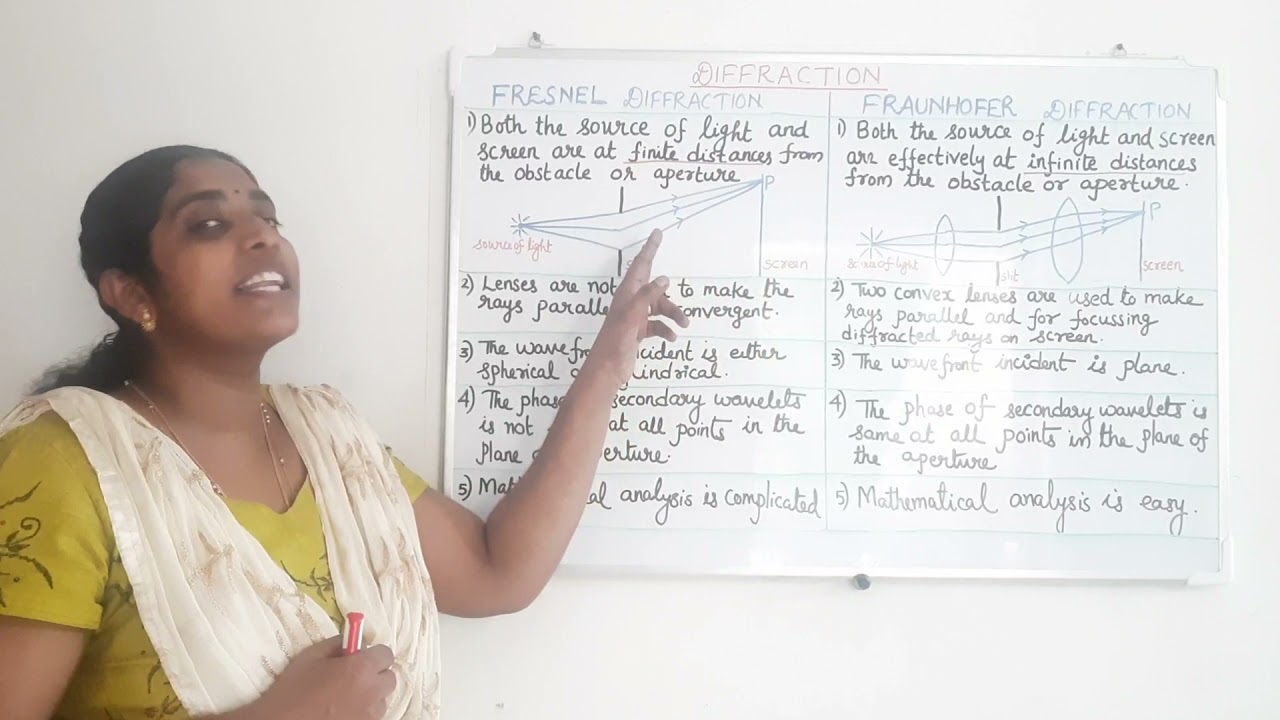 DIFFRACTION
FRESNEL DIFFRACTION
1) Both the source of light and
screen are at finite distances from
the obstacle or aperture
P
source of light
screen
2) Lenses are not to make the
rays convergent.
3) The incident is either
spherical
4) The secondary wavelets
is not at all points in the
plane
5) analysis is complicated
FRAUNHOFER DIFFRACTION
1) Both the source of light and screen
are effectively at infinite distances
from the obstacle or aperture.
P
of light
slit
screen
2) Two convex lenses are used to make
rays parallel and for focussing
diffracted rays on screen.
3) The wavefront incident is plane.
4) The phase of secondary wavelets is
same at all points in the plane of
the aperture
5) Mathematical analysis is easy.